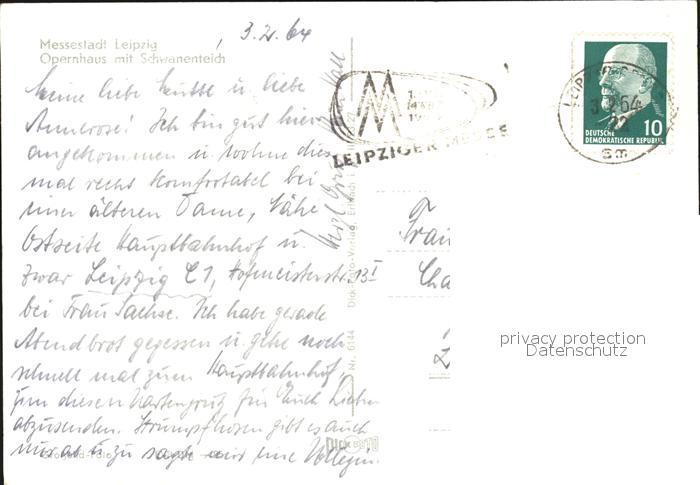 Messestadt Leipzig
Opernhaus mit Schwanenteich
3.2.64
Meine liebe Mutti u. liebe
Annerose! Ich bin gut hier
angekommen u. wohne dies-
mal recht komfortabel bei
einer älteren Dame, Nähe
Ostseite Hauptbahnhof u.
zwar Leipzig C1, Hofmeisterstr. 13 I
bei Frau Sachse. Ich habe gerade
Abendbrot gegessen u. gehe noch
schnell mal zum Hauptbahnhof,
um diesen Kartengruß für Euch Lieben
abzusenden. Strumpfhosen gibt es auch
nur ab u. zu sagte mir eine Kollegin.
LEIPZIGER MESSE
3.2.64
22
DEUTSCHE
DEMOKRATISCHE REPUBLIK
10
Frau
Cha
privacy protection
Datenschutz